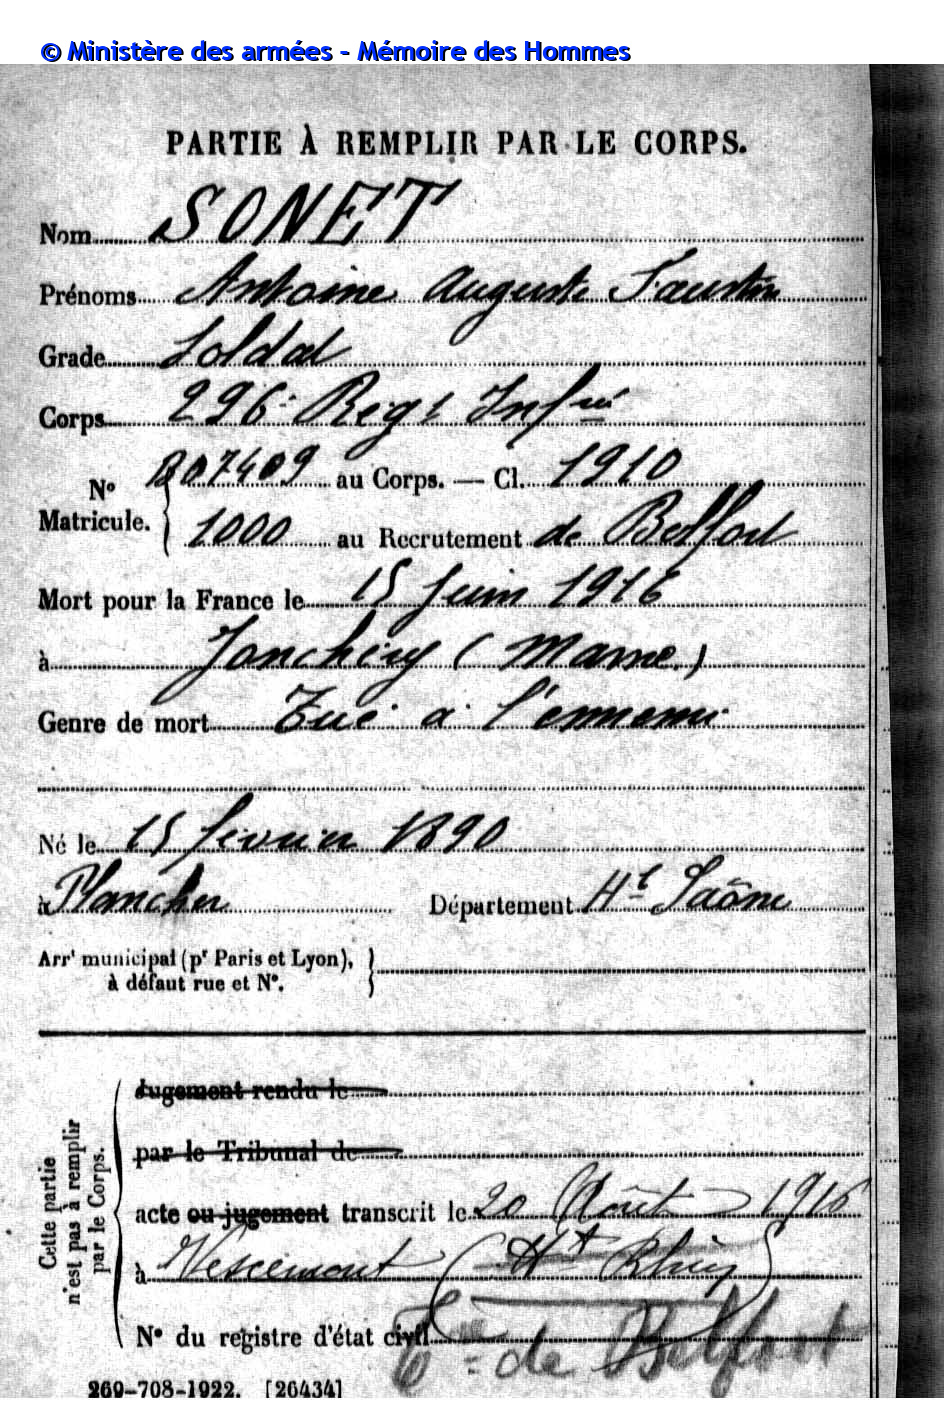 © Ministère des armées - Mémoire des Hommes
PARTIE À REMPLIR PAR LE CORPS.
Nom SONET
Prénoms Antoine Auguste Faustin
Grade Soldat
Corps 296e Régt Infrie
N° Matricule. { B07409 au Corps. — Cl. 1910
1000 au Recrutement de Belfort
Mort pour la France le 15 Juin 1916
à Jonchéry (Marne.)
Genre de mort Tué à l'ennemi
Né le 15 février 1890
à Plancher Département Hte Saône
Arrt municipal (pr Paris et Lyon),
à défaut rue et N°.
Cette partie n'est pas à remplir par le Corps.
Jugement rendu le
par le Tribunal de
acte ou jugement transcrit le 20 Août 1916
à Vescemont (Ht Rhin)
N° du registre d'état civil
Tre de Belfort
269-708-1922. [26434]